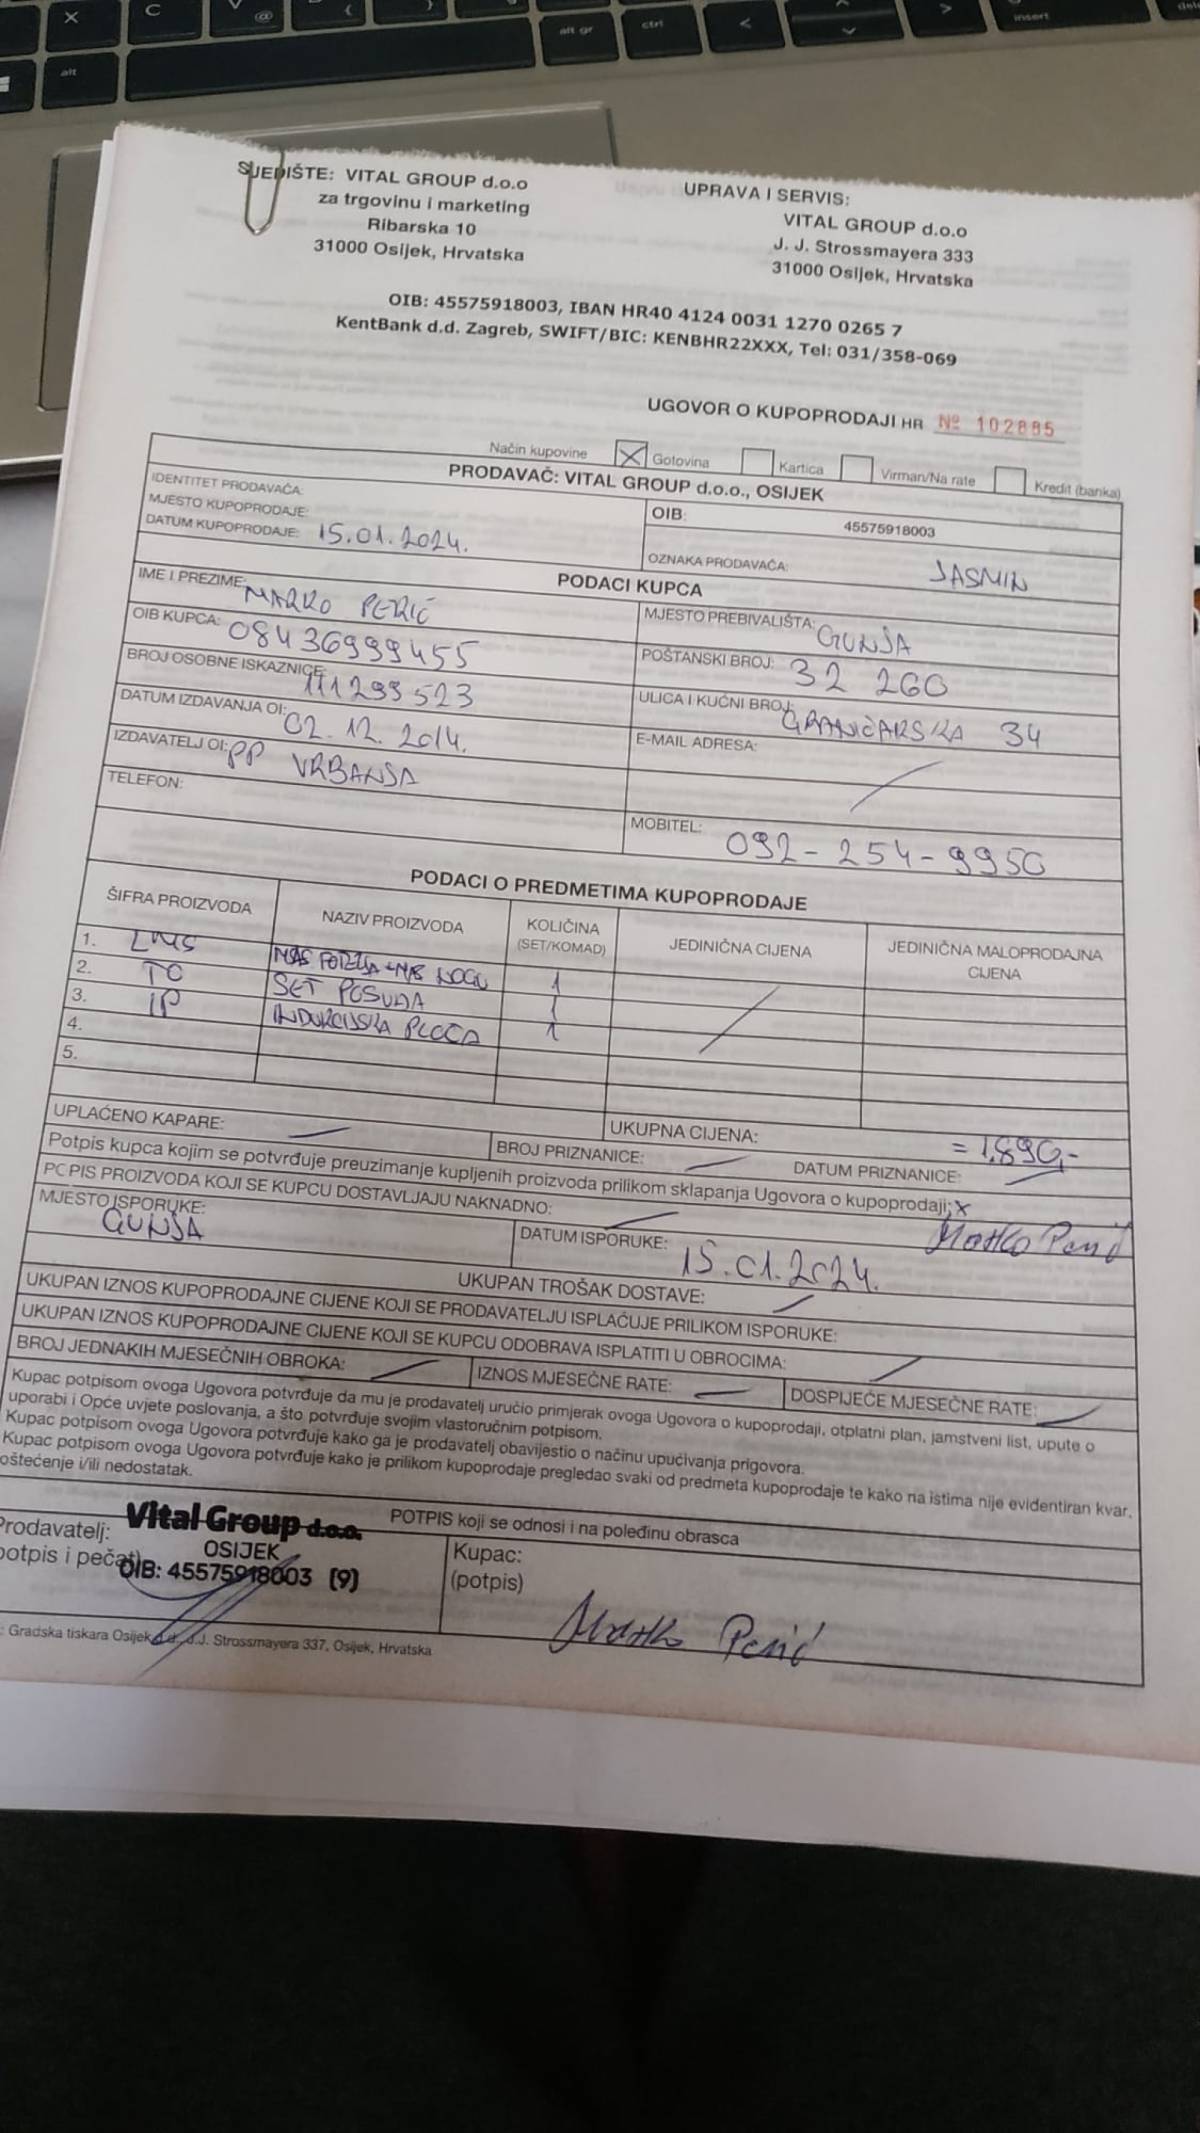 SJEDIŠTE: VITAL GROUP d.o.o
za trgovinu i marketing
Ribarska 10
31000 Osijek, Hrvatska
UPRAVA I SERVIS:
VITAL GROUP d.o.o
J. J. Strossmayera 333
31000 Osijek, Hrvatska
OIB: 45575918003, IBAN HR40 4124 0031 1270 0265 7
KentBank d.d. Zagreb, SWIFT/BIC: KENBHR22XXX, Tel: 031/358-069
UGOVOR O KUPOPRODAJI HR Nº 102885
Način kupovine Gotovina Kartica Virman/Na rate Kredit (banka)
PRODAVAČ: VITAL GROUP d.o.o., OSIJEK
IDENTITET PRODAVAČA:
MJESTO KUPOPRODAJE:
DATUM KUPOPRODAJE: 15.01.2024.
OIB: 45575918003
OZNAKA PRODAVAČA: JASMIN
PODACI KUPCA
IME I PREZIME: MARKO PERIĆ
MJESTO PREBIVALIŠTA: GUNJA
OIB KUPCA: 08436999455
POŠTANSKI BROJ: 32 260
BROJ OSOBNE ISKAZNICE: 111299523
ULICA I KUĆNI BROJ: GRANIČARSKA 34
DATUM IZDAVANJA OI: 02.12.2014.
E-MAIL ADRESA:
IZDAVATELJ OI: PP VRBANJA
TELEFON:
MOBITEL: 092-254-9950
PODACI O PREDMETIMA KUPOPRODAJE
ŠIFRA PROIZVODA NAZIV PROIZVODA KOLIČINA (SET/KOMAD) JEDINIČNA CIJENA JEDINIČNA MALOPRODAJNA CIJENA
1. LMS MAS FOTELJA 1
2. TC SET POSUĐA 1
3. IP INDUKCIJSKA PLOČA 1
4.
5.
UPLAĆENO KAPARE:
UKUPNA CIJENA: =1.890,-
BROJ PRIZNANICE: DATUM PRIZNANICE:
Potpis kupca kojim se potvrđuje preuzimanje kupljenih proizvoda prilikom sklapanja Ugovora o kupoprodaji; x
Marko Perić
POPIS PROIZVODA KOJI SE KUPCU DOSTAVLJAJU NAKNADNO:
MJESTO ISPORUKE: GUNJA
DATUM ISPORUKE: 15.01.2024.
UKUPAN TROŠAK DOSTAVE:
UKUPAN IZNOS KUPOPRODAJNE CIJENE KOJI SE PRODAVATELJU ISPLAĆUJE PRILIKOM ISPORUKE:
UKUPAN IZNOS KUPOPRODAJNE CIJENE KOJI SE KUPCU ODOBRAVA ISPLATITI U OBROCIMA:
BROJ JEDNAKIH MJESEČNIH OBROKA: IZNOS MJESEČNE RATE: DOSPIJEĆE MJESEČNE RATE:
Kupac potpisom ovoga Ugovora potvrđuje da mu je prodavatelj uručio primjerak ovoga Ugovora o kupoprodaji, otplatni plan, jamstveni list, upute o
uporabi i Opće uvjete poslovanja, a što potvrđuje svojim vlastoručnim potpisom.
Kupac potpisom ovoga Ugovora potvrđuje kako ga je prodavatelj obavijestio o načinu upućivanja prigovora.
Kupac potpisom ovoga Ugovora potvrđuje kako je prilikom kupoprodaje pregledao svaki od predmeta kupoprodaje te kako na istima nije evidentiran kvar,
oštećenje i/ili nedostatak.
POTPIS koji se odnosi i na poleđinu obrasca
Prodavatelj:
potpis i pečat)
Vital Group d.o.o.
OSIJEK
OIB: 45575918003 (9)
Kupac:
(potpis)
Marko Perić
: Gradska tiskara Osijek d.d., J.J. Strossmayera 337, Osijek, Hrvatska